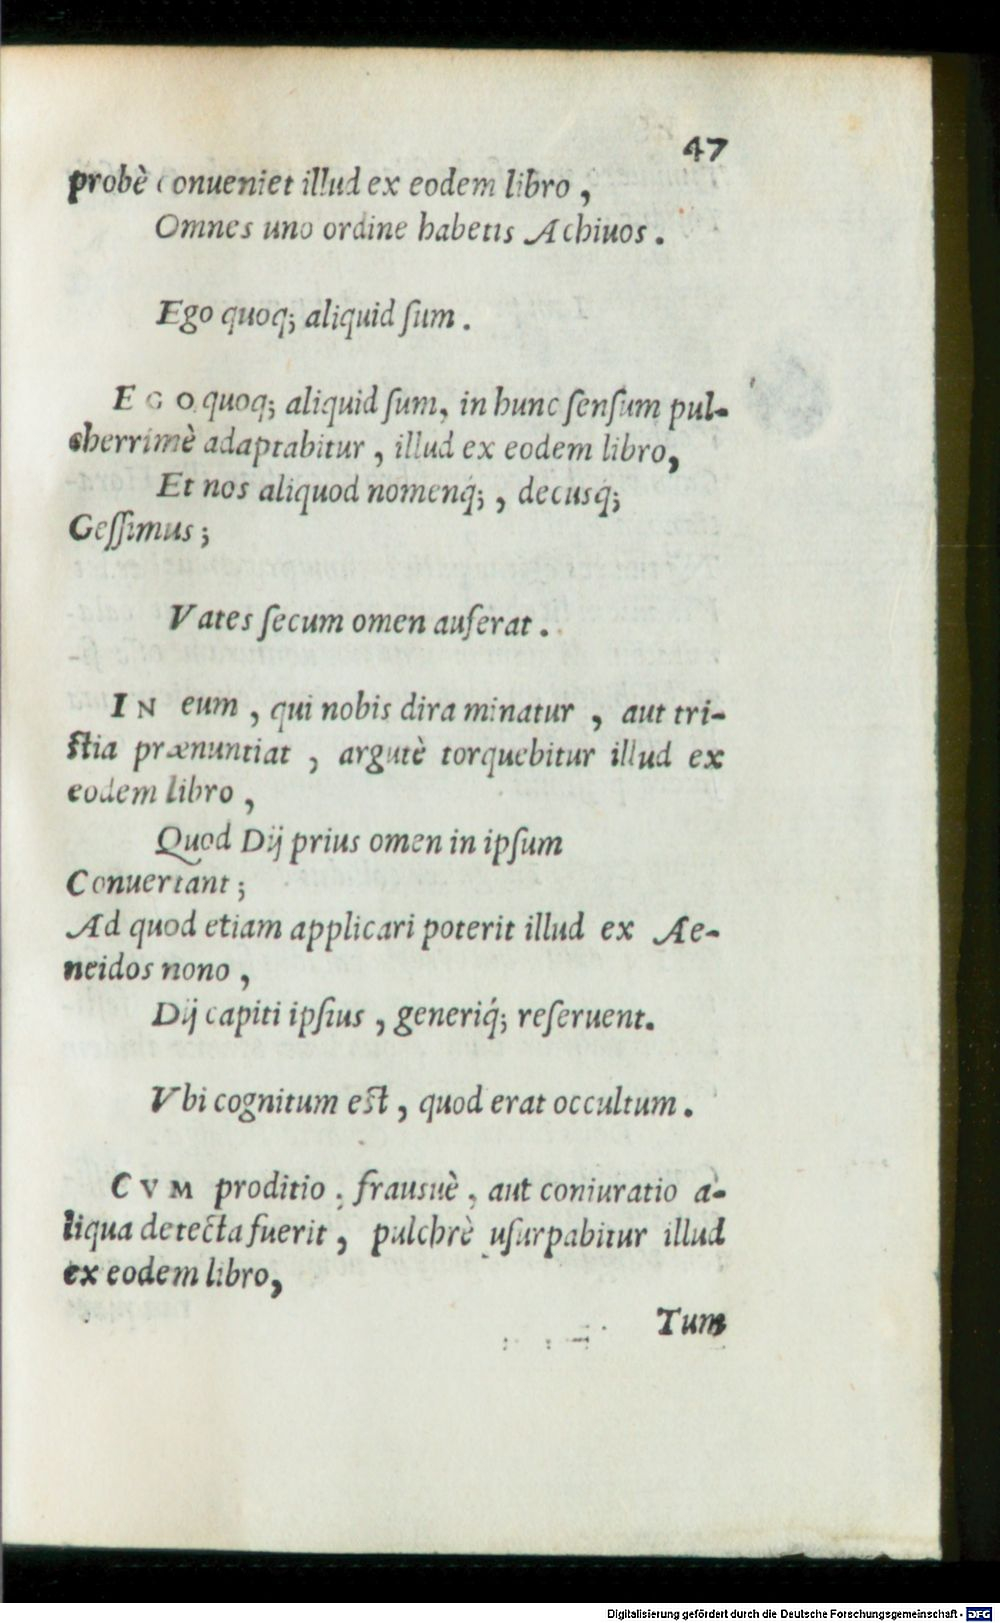 47
probè conueniet illud ex eodem libro ,
Omnes uno ordine habetis Achiuos .
Ego quoq; aliquid ſum .
EGO quoq; aliquid ſum, in hunc ſenſum pul-
cherrimè adaptabitur , illud ex eodem libro,
Et nos aliquod nomenq́; , decusq́;
Geſſimus ;
Vates ſecum omen auferat .
IN eum , qui nobis dira minatur , aut tri-
ſtia prænuntiat , argutè torquebitur illud ex
eodem libro ,
Quod Dij prius omen in ipſum
Conuertant ;
Ad quod etiam applicari poterit illud ex Ae-
neidos nono ,
Dij capiti ipſius , generiq́; reſeruent.
Vbi cognitum eſt , quod erat occultum .
CVM proditio , frausuè , aut coniuratio a-
liqua detecta fuerit , pulchrè uſurpabitur illud
ex eodem libro,
Tum
Digitalisierung gefördert durch die Deutsche Forschungsgemeinschaft - DFG